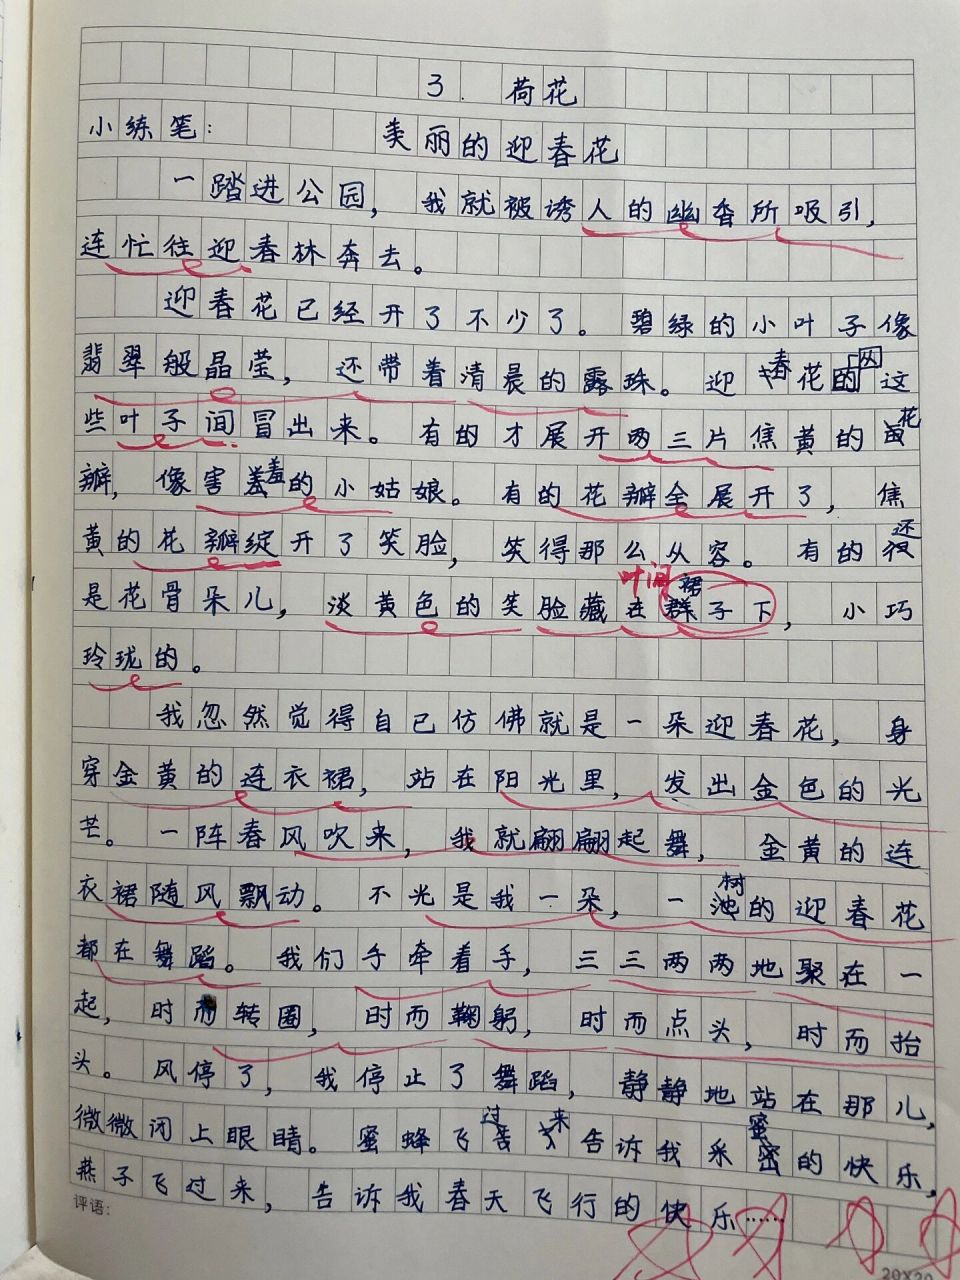 3. 荷花
小练笔： 美丽的迎春花
一踏进公园，我就被诱人的幽香所吸引，
连忙往迎春林奔去。
迎春花已经开了不少了。碧绿的小叶子像
翡翠般晶莹，还带着清晨的露珠。迎春花从这
些叶子间冒出来。有的才展开两三片焦黄的花
瓣，像害羞的小姑娘。有的花瓣全展开了，焦
黄的花瓣绽开了笑脸，笑得那么从容。有的还
是花骨朵儿，淡黄色的笑脸藏在裙子下，小巧
叶间
玲珑的。
我忽然觉得自己仿佛就是一朵迎春花，身
穿金黄的连衣裙，站在阳光里，发出金色的光
芒。一阵春风吹来，我就翩翩起舞，金黄的连
衣裙随风飘动。不光是我一朵，一树的迎春花
都在舞蹈。我们手牵着手，三三两两地聚在一
起，时而转圈，时而鞠躬，时而点头，时而抬
头。风停了，我停止了舞蹈，静静地站在那儿，
微微闭上眼睛。蜜蜂飞过来告诉我采蜜的快乐，
燕子飞过来，告诉我春天飞行的快乐……
评语：
20×20